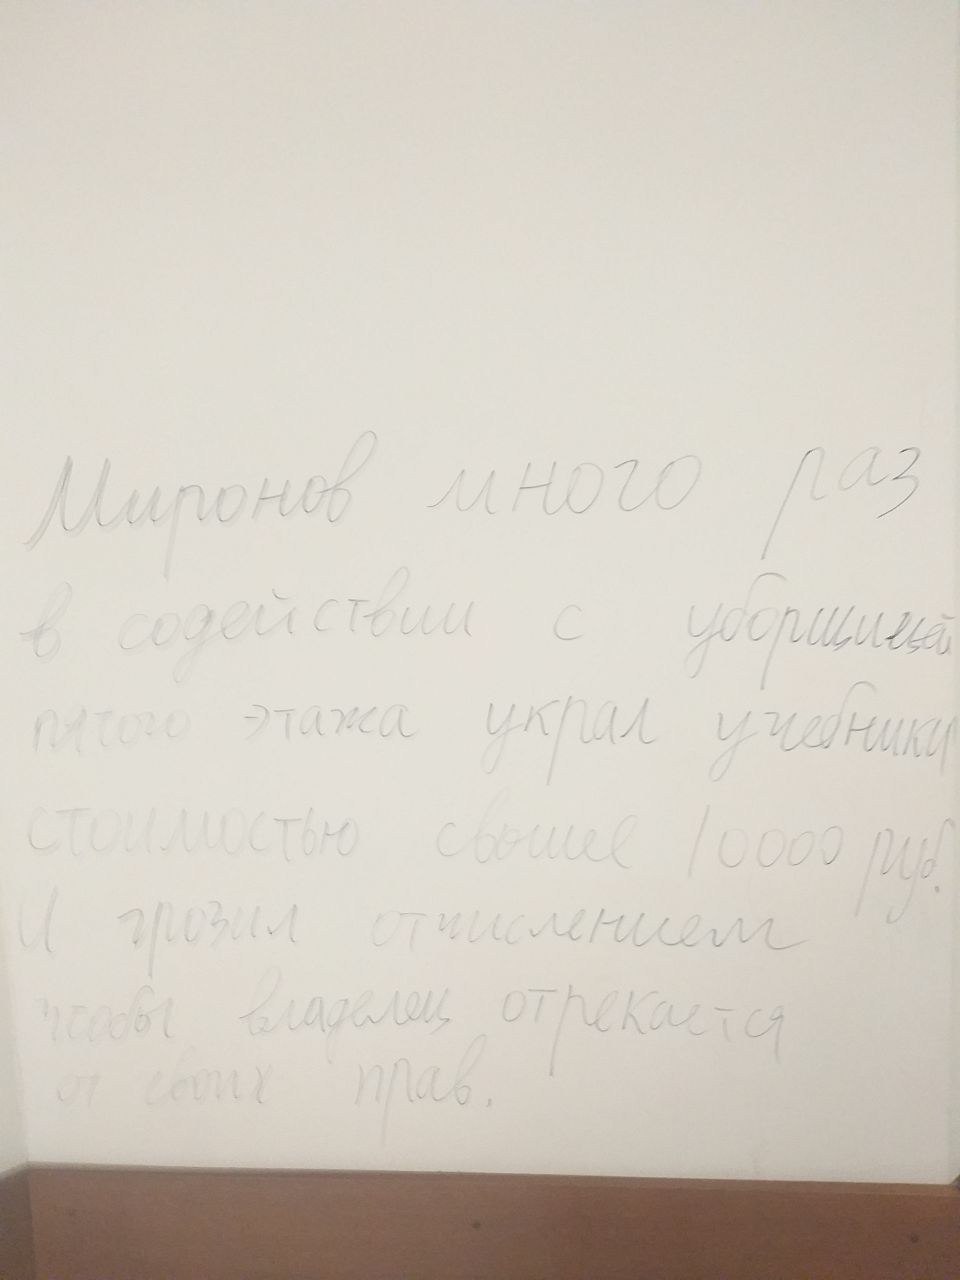 Миронов много раз
в содействии с уборщицей
пятого этажа украл учебники
стоимостью свыше 10000 руб.
И грозил отчислением
чтобы владелец отрекается
от своих прав.